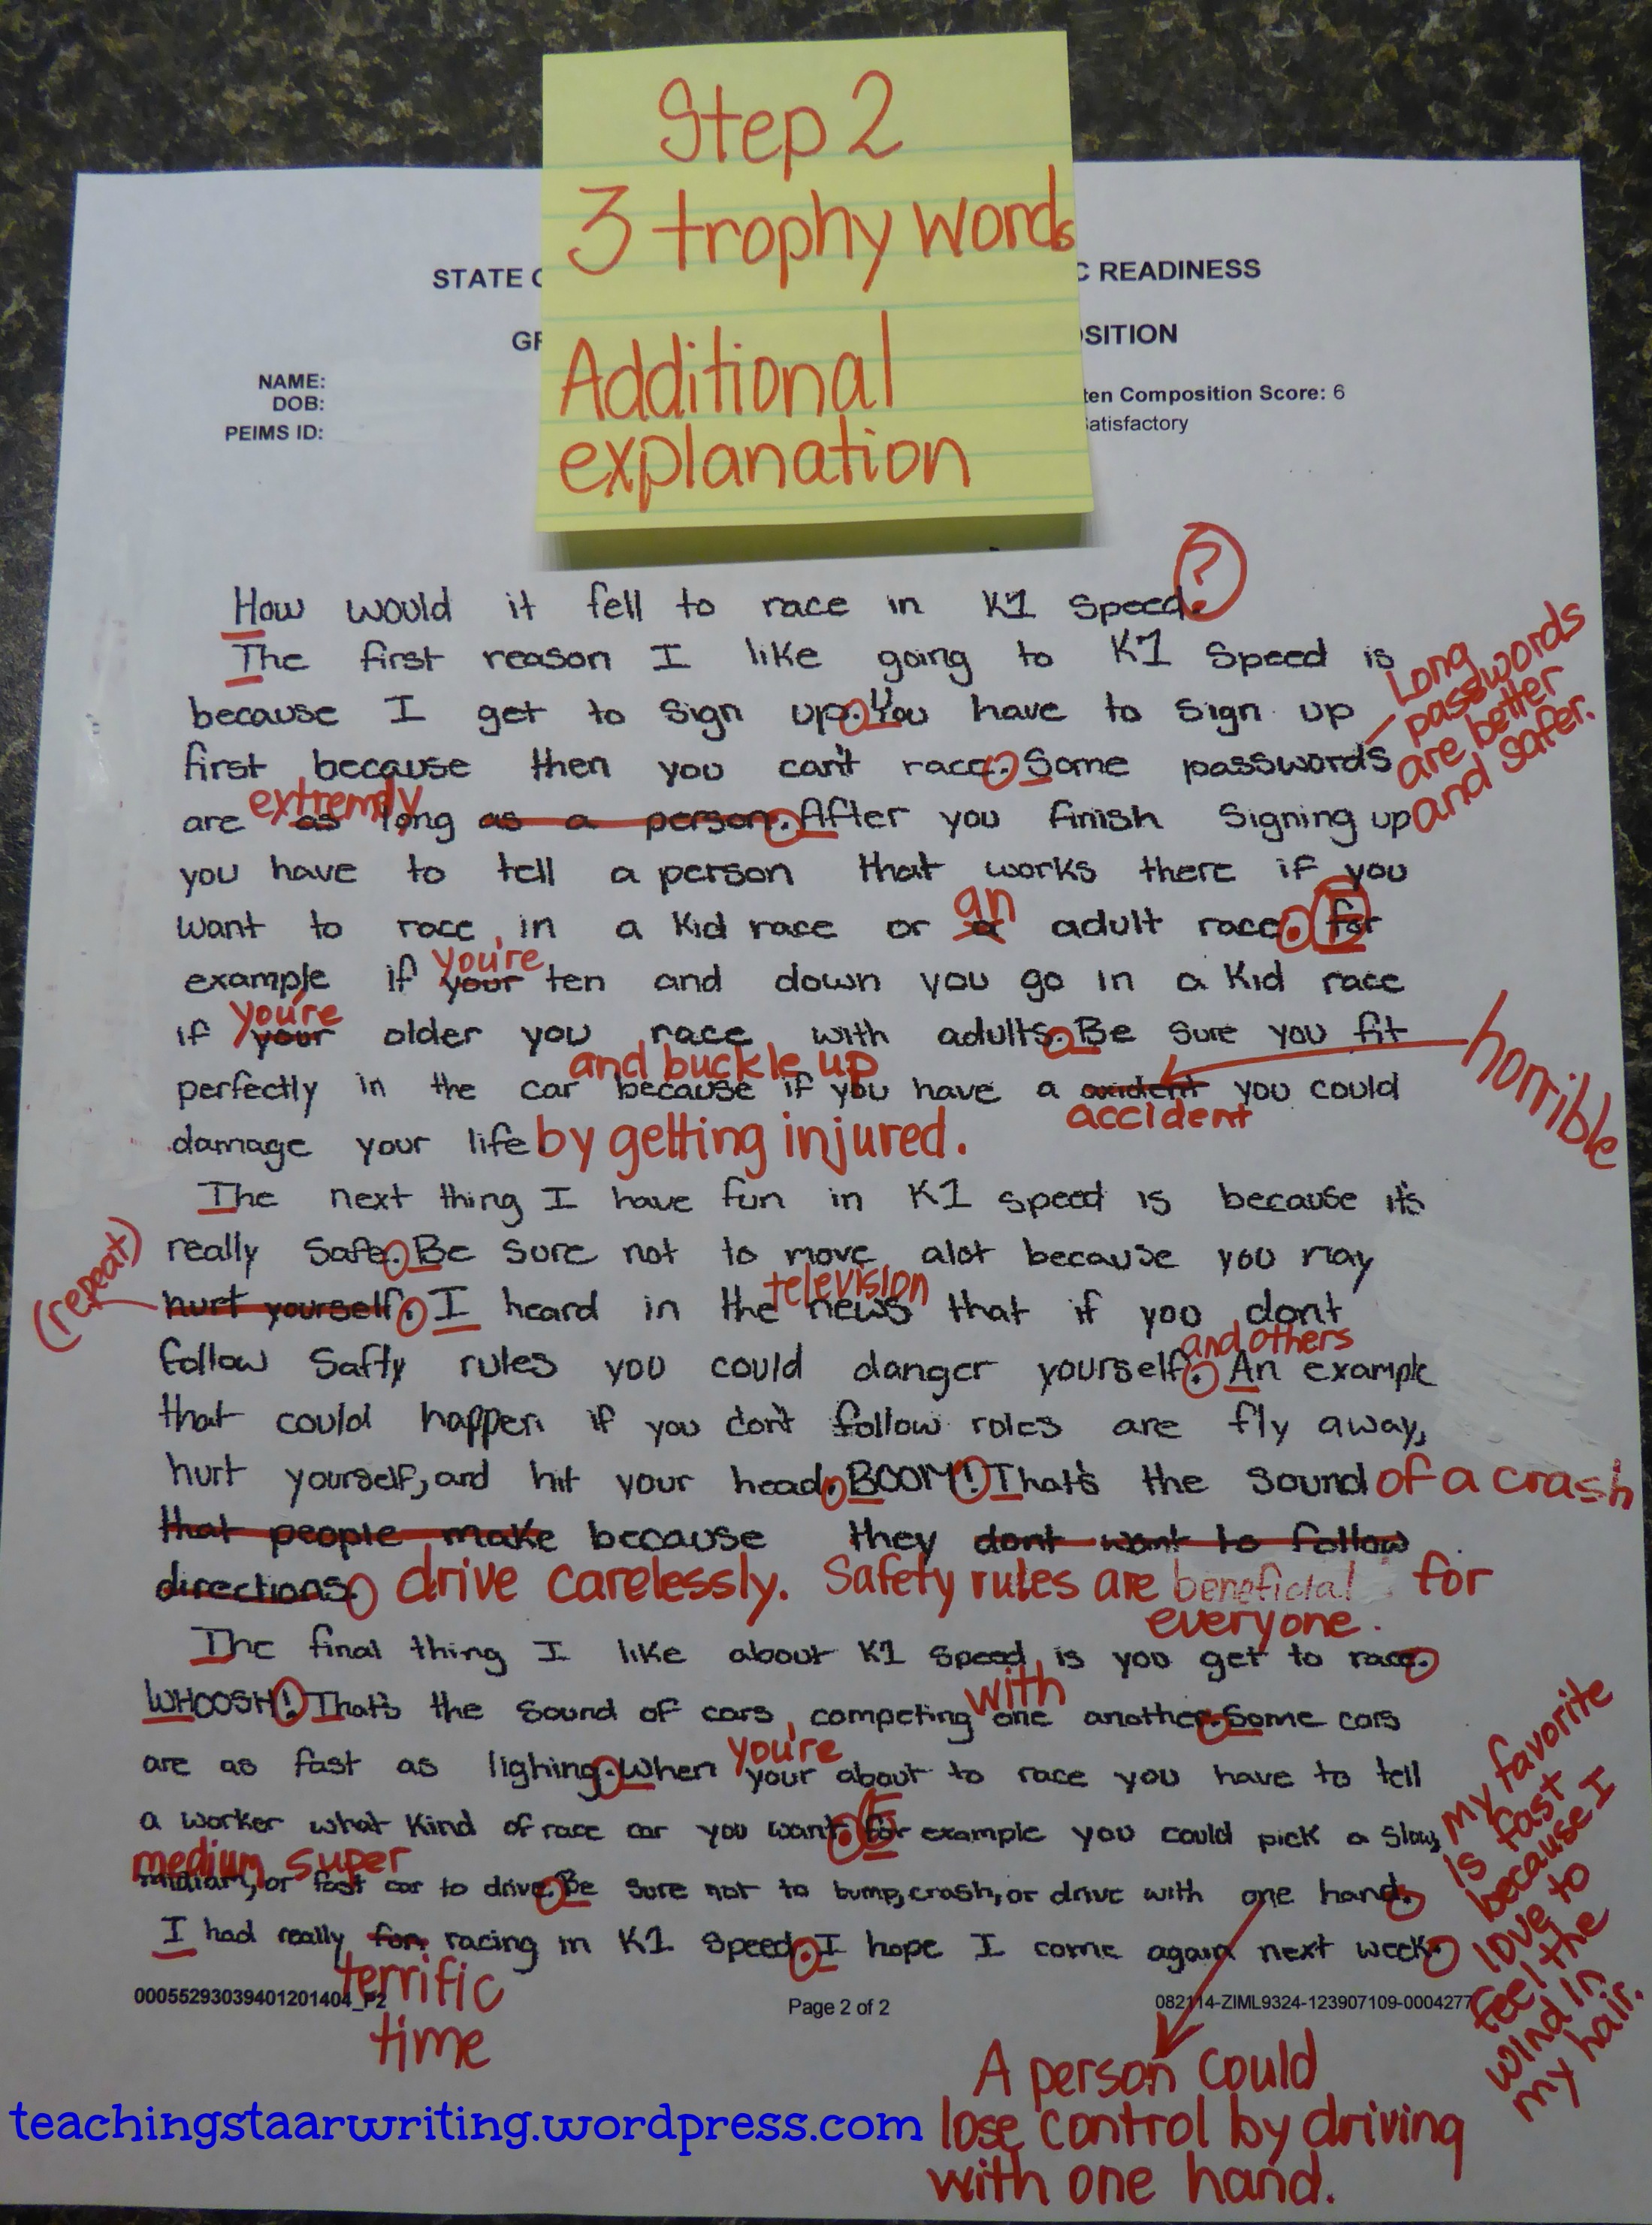 Step 2
3 trophy words
Additional
explanation
STATE C READINESS
SITION
NAME:
DOB:
ten Composition Score: 6
PEIMS ID:
atisfactory
?
How would it fell to race in K1 Speed.
The first reason I like going to K1 Speed is
because I get to sign up. You have to sign up
Long
passwords
are better
and safer.
first because then you can't race. Some passwords
extremly
are as long as a person. After you finish signing up
you have to tell a person that works there if you
an
want to race, in a kid race or a adult race. For
you're
example if your ten and down you go in a kid race
you're
if your older you race with adults. Be sure you fit
horrible
and buckle up
perfectly in the car because if you have a axident you could
accident
damage your life by getting injured.
The next thing I have fun in K1 speed is because it's
really safe. Be sure not to move alot because you may
(repeat)
television
hurt yourself. I heard in the news that if you dont
and others
follow safty rules you could danger yourself. An example
that could happen if you don't follow roles are fly away,
hurt yourself, and hit your head. BOOM! That's the sound of a crash
that people make because they dont want to follow
directions. drive carelessly. Safety rules are beneficial for
everyone.
The final thing I like about K1 Speed, is you get to race.
with
WHOOSH! That's the sound of cars, competing one another. Some cars
you're
are as fast as lighing. When your about to race you have to tell
a worker what kind of race car you want. For example you could pick a slow,
medium super
midiam, or fast car to drive. Be sure not to bump, crash, or drive with one hand.
My favorite
is fast
because I
love to
feel the
wind in
my hair.
I had really fon racing in K1 Speed. I hope I come again next week.
terrific
time
00055293039401201404_P2
Page 2 of 2
082114-ZIML9324-123907109-0004277
A person could
lose control by driving
with one hand.
teachingstaarwriting.wordpress.com